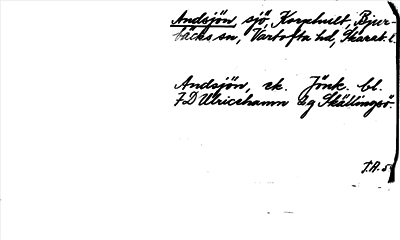 Andsjön, sjö, Korphult, Bjur-
bäcks sn, Vartofta hd, Skarab. l.
Andsjön, rk. Jönk. bl.
7D Ulricehamn 2g Skällingsö.
J.A. 5